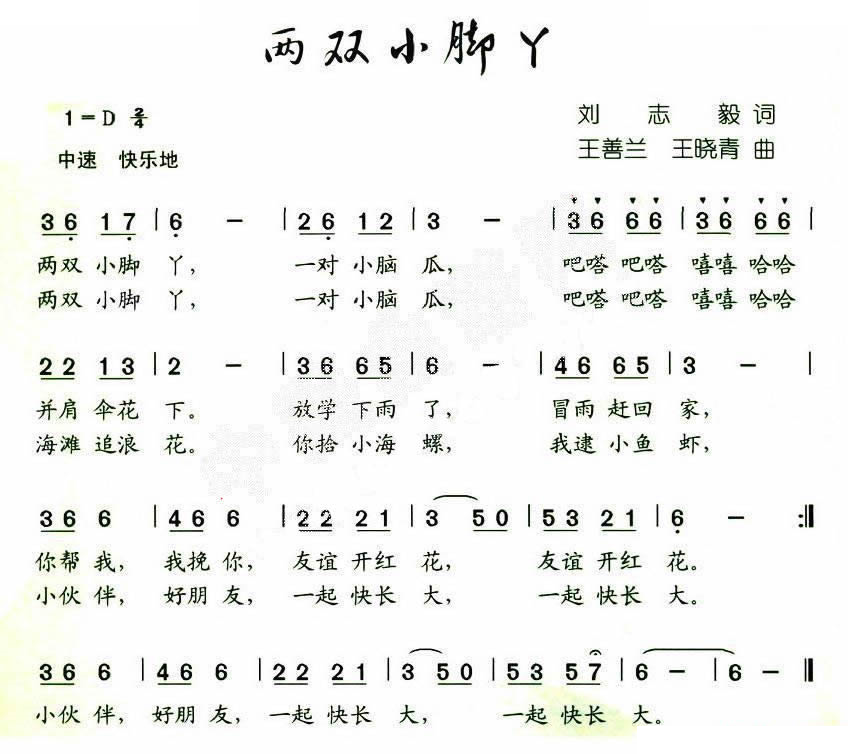 两双小脚丫
1=D 2/4
刘志毅词
中速 快乐地
王善兰 王晓青 曲
36 17 | 6 – | 26 12 | 3 – | 36 66 | 36 66 |
两双 小脚 丫, 一对 小脑 瓜, 吧嗒 吧嗒 嘻嘻 哈哈
两双 小脚 丫, 一对 小脑 瓜, 吧嗒 吧嗒 嘻嘻 哈哈
22 13 | 2 – | 36 65 | 6 – | 46 65 | 3 – |
并肩 伞花 下。 放学 下雨 了, 冒雨 赶回 家,
海滩 追浪 花。 你拾 小海 螺, 我逮 小鱼 虾,
36 6 | 46 6 | 22 21 | 3 50 | 53 21 | 6 – :‖
你帮 我, 我挽 你, 友谊 开红 花, 友谊 开红 花。
小伙 伴, 好朋 友, 一起 快长 大, 一起 快长 大。
36 6 | 46 6 | 22 21 | 3 50 | 53 57 | 6 – | 6 – ‖
小伙 伴, 好朋 友, 一起 快长 大, 一起 快长 大。